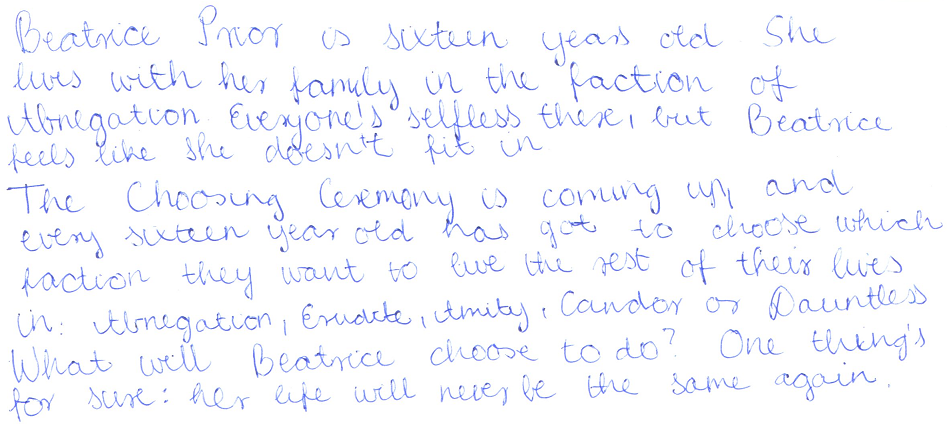 Beatrice Prior is sixteen years old She
lives with her family in the faction of
Abnegation. Everyone's selfless there, but Beatrice
feels like she doesn't fit in
The Choosing Ceremony is coming up, and
every sixteen year old has got to choose which
faction they want to live the rest of their lives
in: Abnegation, Erudite, Amity, Candor or Dauntless
What will Beatrice choose to do? One thing's
for sure: her life will never be the same again.